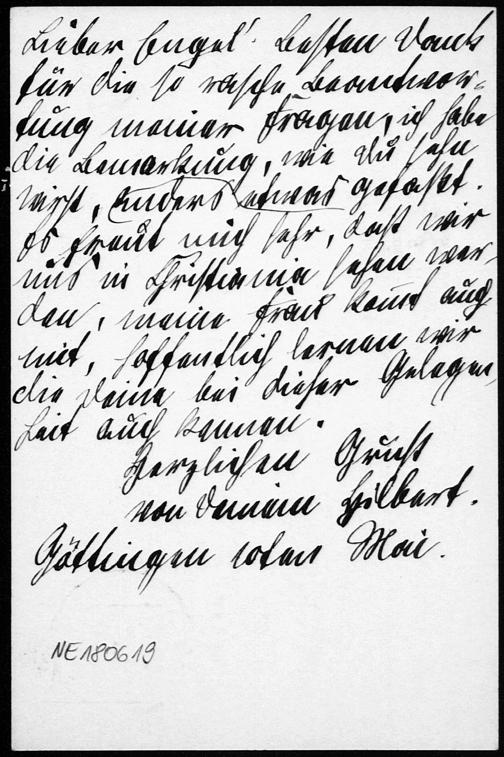 Lieber Engel! Besten Dank
für die so rasche Beantwor-
tung meiner Fragen, ich habe
die Bemerkung, wie Du sehn
wirst, anders etwas gefaßt.
Es freut mich sehr, daß wir
uns in Christiania sehen wer-
den, meine Frau kommt auch
mit, hoffentlich lernen wir
die Deine bei dieser Gelegen-
heit auch kennen.
Herzlichen Gruß
von Deinem Hilbert.
Göttingen 10ten Mai.
NE180619